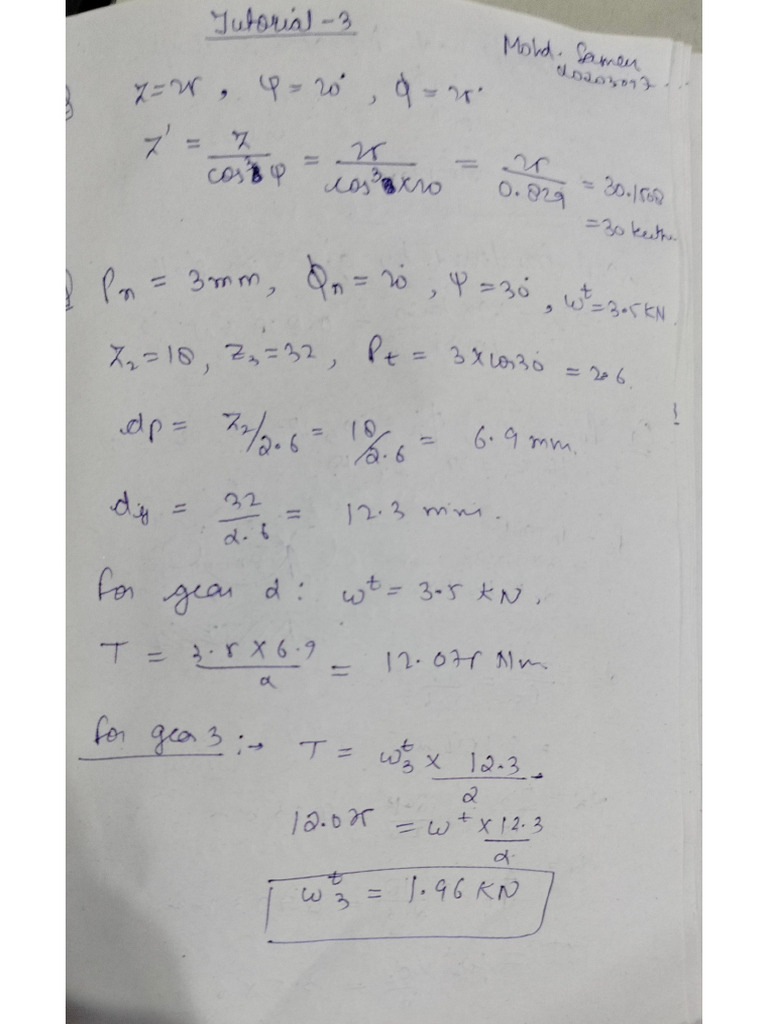 Tutorial - 3
Mohd. Sameer
Z = 25, ψ = 20°, ϕ = 25°
Z' = Z / cos³ψ = 25 / cos³ × 20 = 25 / 0.829 = 30.1508
= 30
Pn = 3mm, ϕn = 20°, ψ = 30°, wᵗ = 3.5 KN
Z₂ = 18, Z₃ = 32, Pt = 3 × cos30 = 2.6
dp = Z₂/2.6 = 18/2.6 = 6.9 mm.
= 32 / 2.6 = 12.3 mm.
for gear 2 : wᵗ = 3.5 KN.
T = 3.5 × 6.9 / 2 = 12.075 Nm
for gear 3 :→ T = w₃ᵗ × 12.3 / 2
12.075 = wᵗ × 12.3 / 2
w₃ᵗ = 1.96 KN